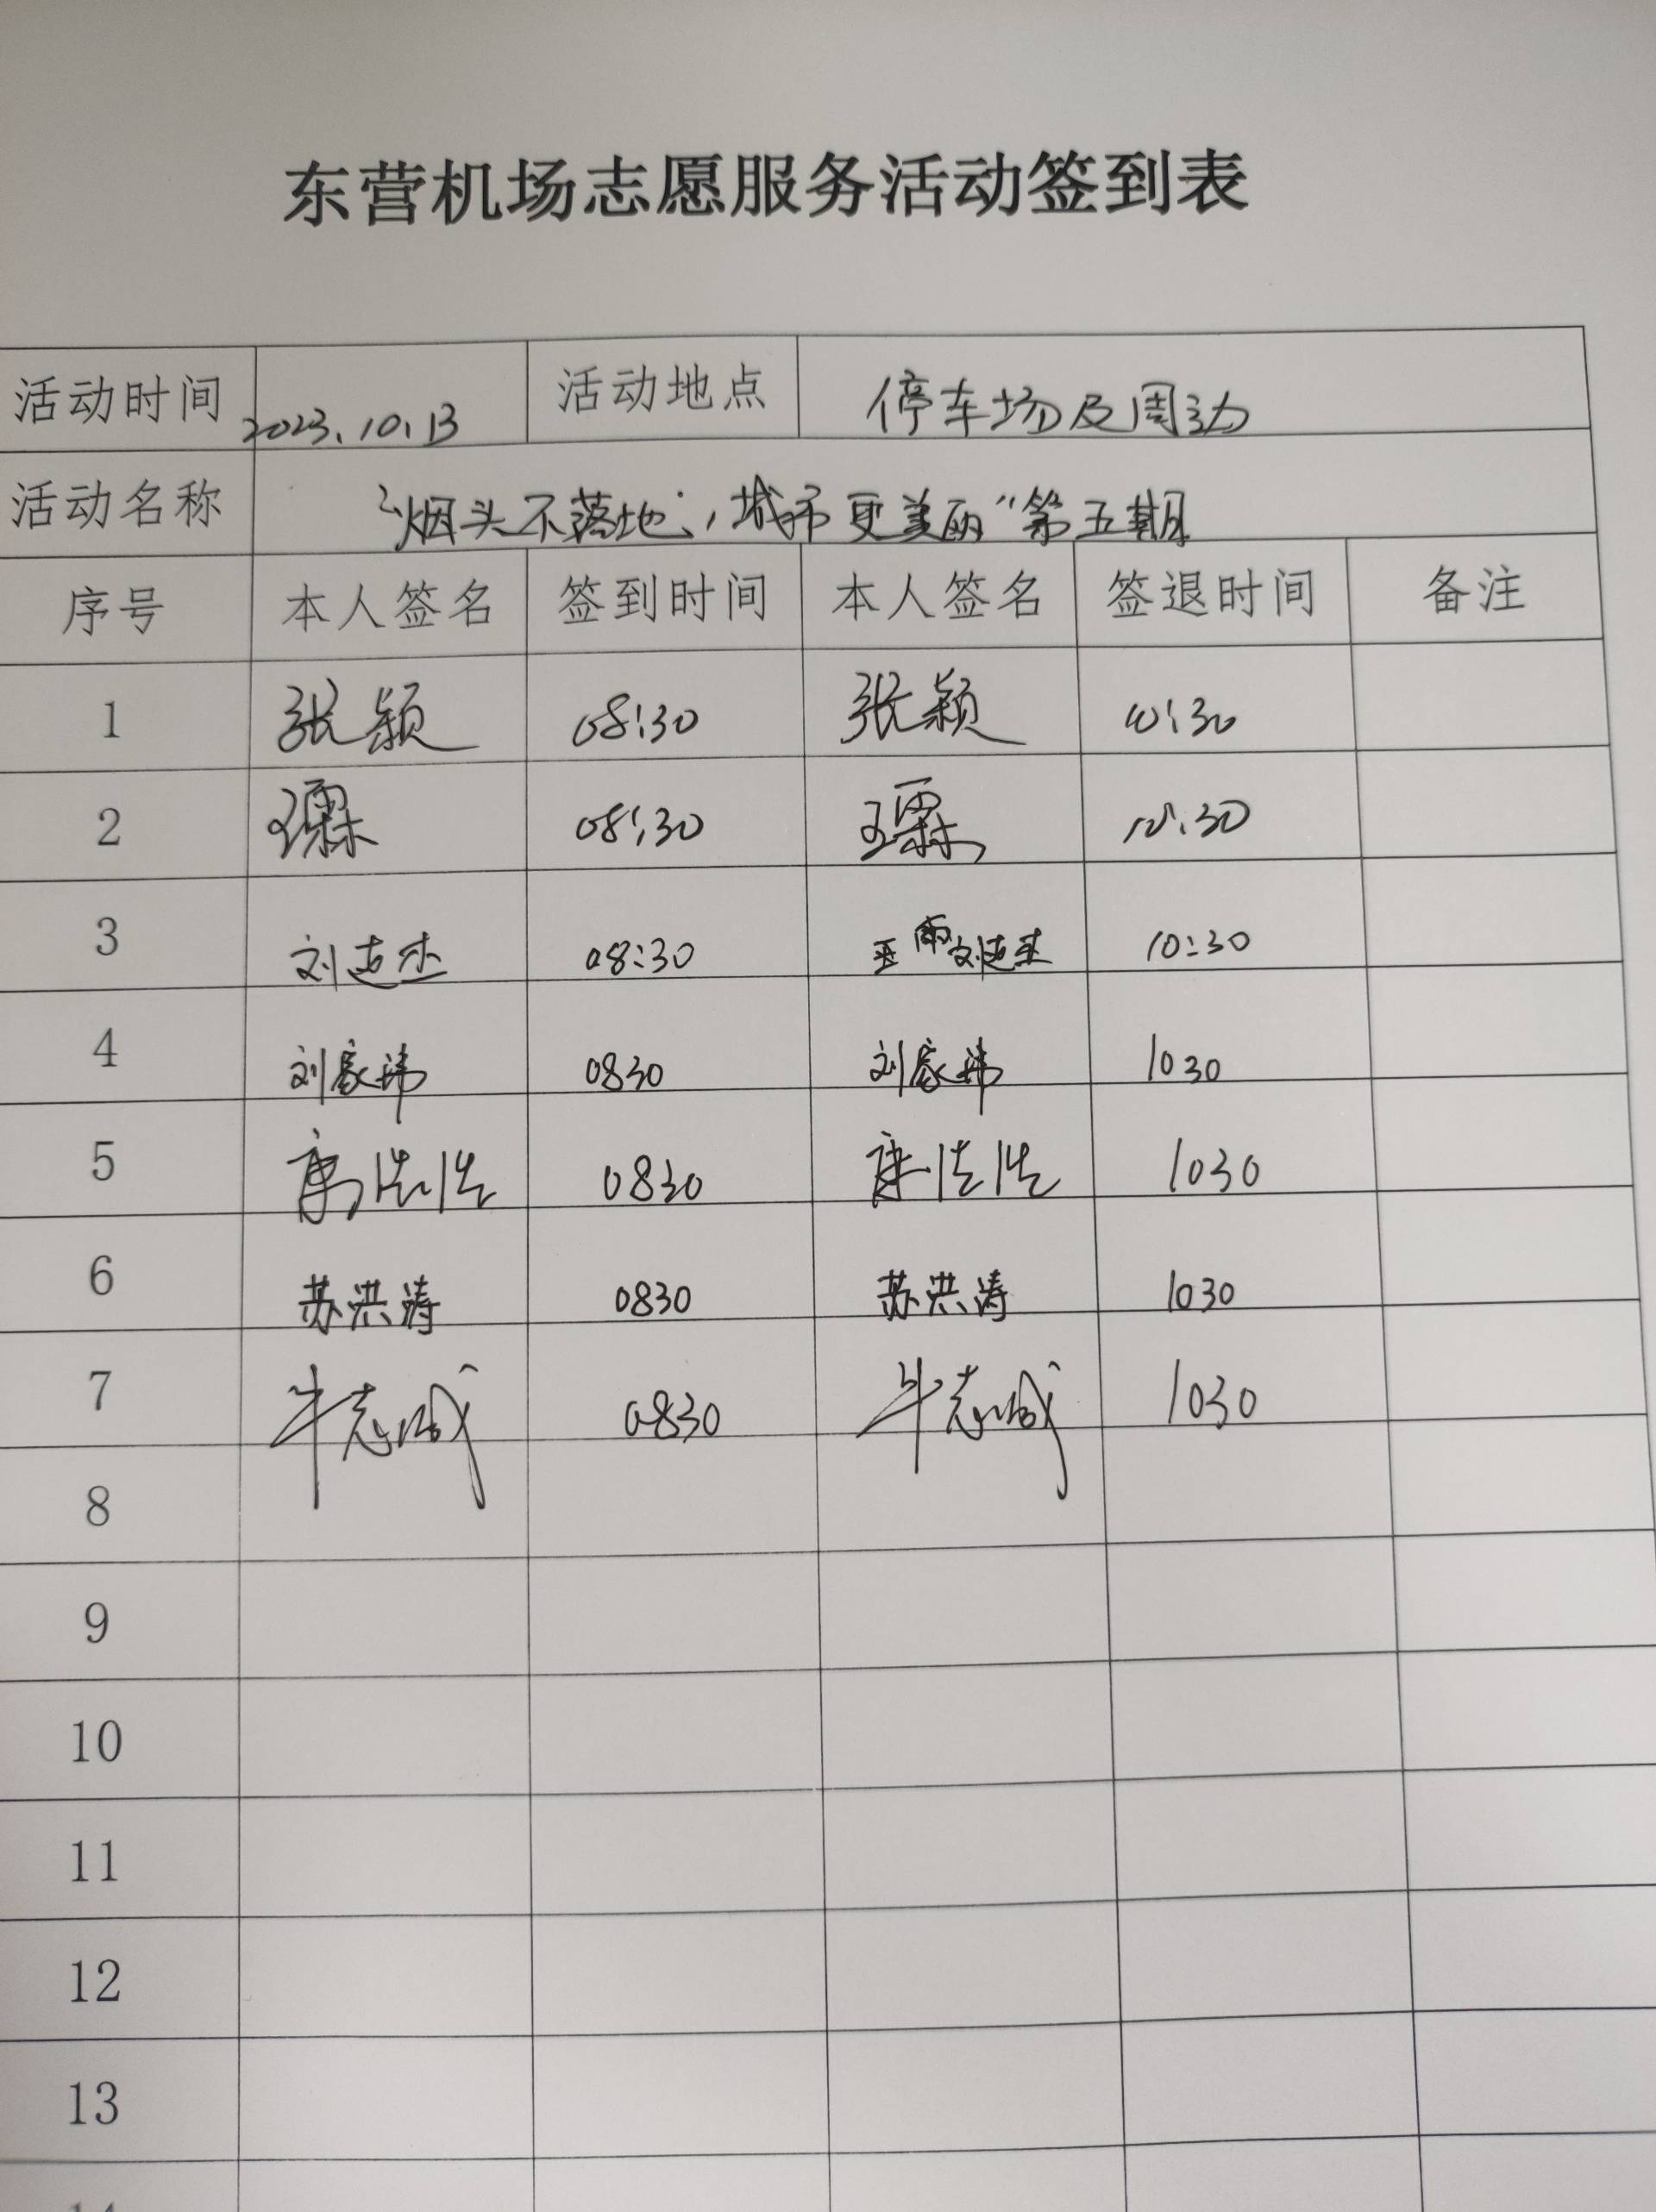 东营机场志愿服务活动签到表
活动时间 2023.10.13 活动地点 停车场及周边
活动名称 “烟头不落地，城市更美丽”第五期
序号 本人签名 签到时间 本人签名 签退时间 备注
1 张颖 08:30 张颖 10:30
2 08:30 10:30
3 08:30 10:30
4 刘家玮 0830 刘家玮 1030
5 0830 1030
6 苏洪涛 0830 苏洪涛 1030
7 牛志诚 0830 牛志诚 1030
8
9
10
11
12
13